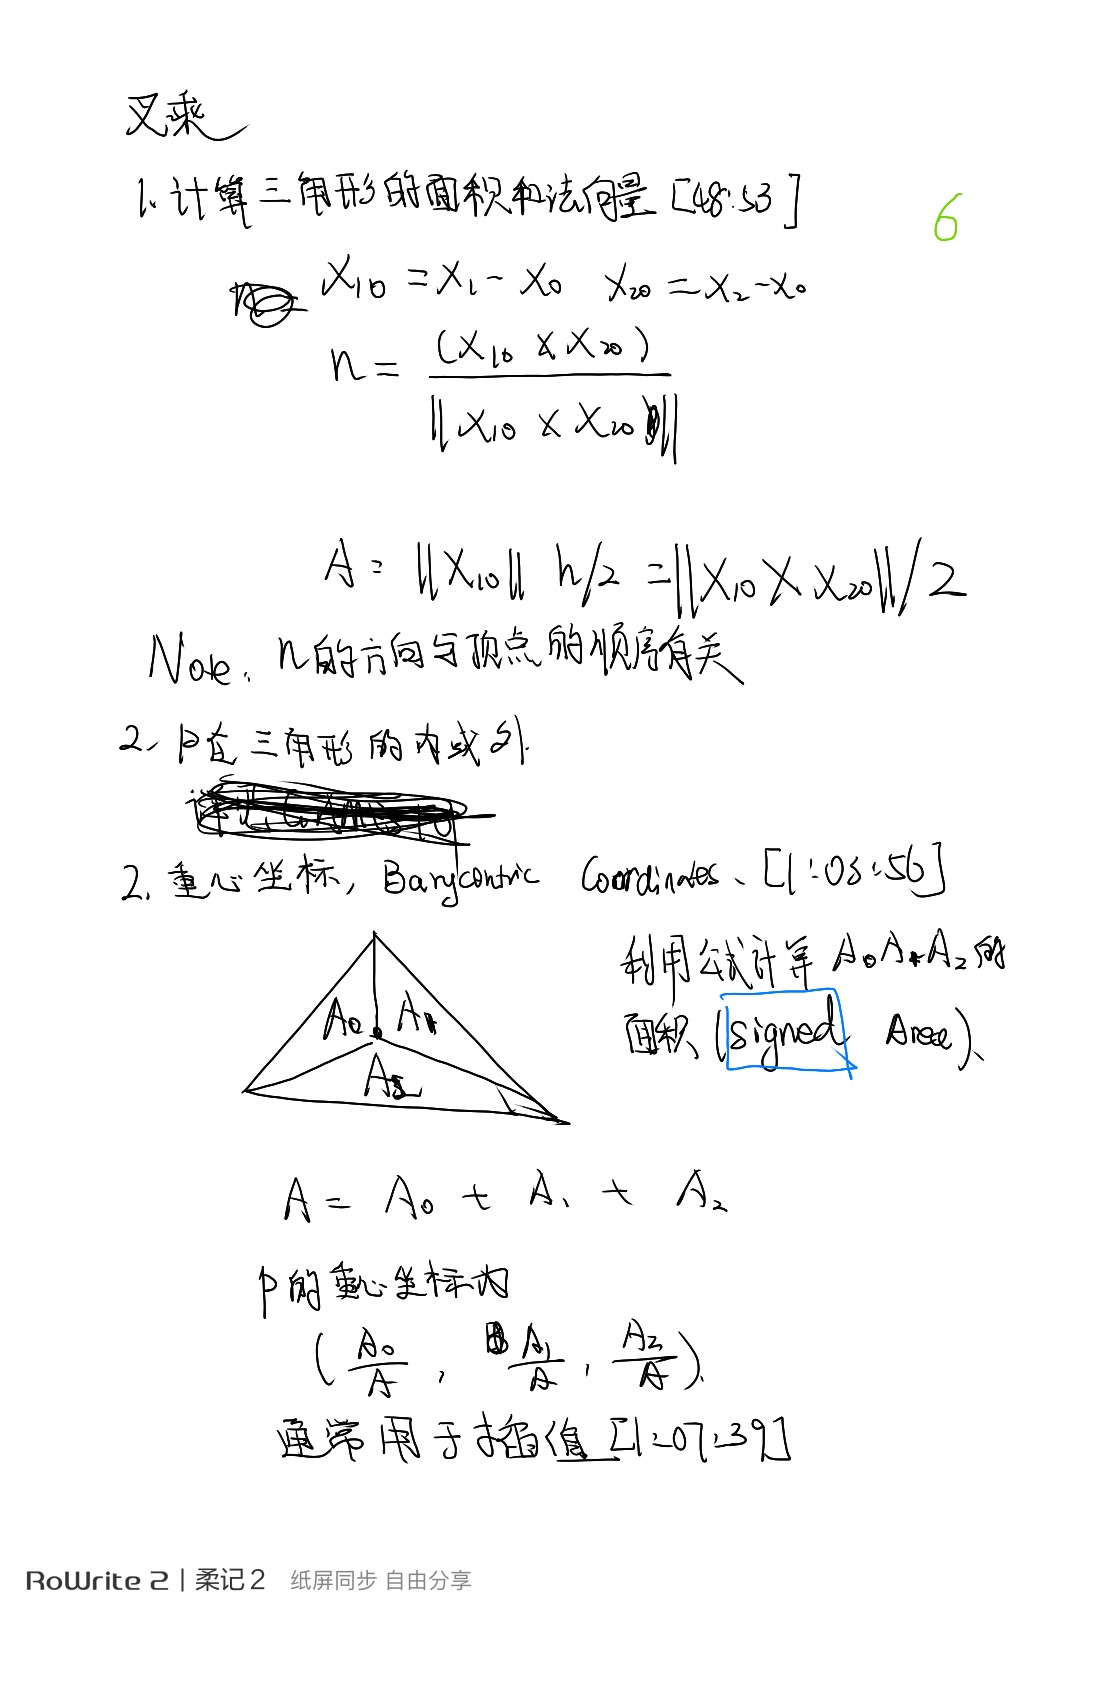 叉乘
1. 计算三角形的面积和法向量 [48:53]
6
X₁₀ = X₁ - X₀  X₂₀ = X₂ - X₀
n = (X₁₀ × X₂₀) / ‖X₁₀ × X₂₀‖
A = ‖X₁₀‖ h/2 = ‖X₁₀ × X₂₀‖/2
Note. n的方向与顶点的顺序有关
2. P在三角形的内或外.
2. 重心坐标, Barycentric Coordinates. [1:08:56]
利用公式计算 A₀A₁A₂的
面积 (signed Area).
A₀ A₁
A₂
A = A₀ + A₁ + A₂
P的重心坐标为
(A₀/A, A₁/A, A₂/A).
通常用于插值 [1:07:39]
RoWrite 2 | 柔记2 纸屏同步 自由分享